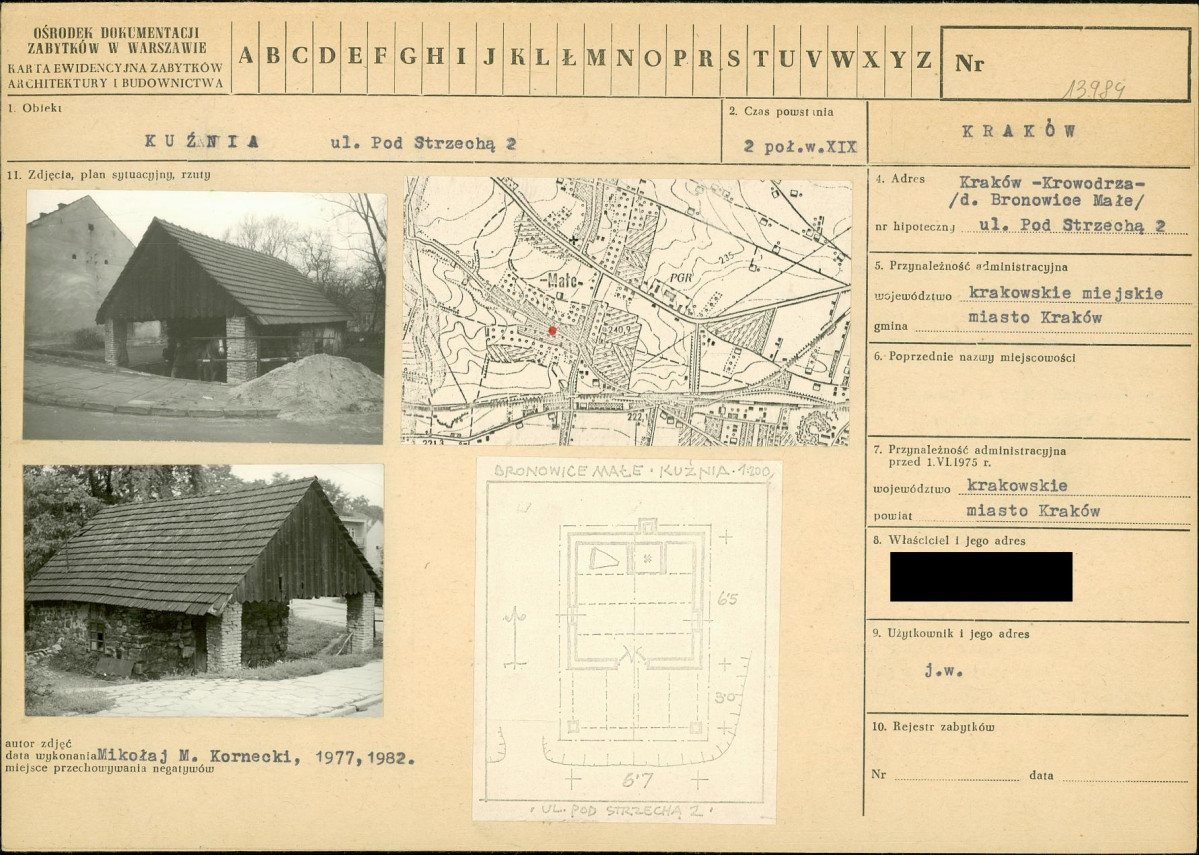 OŚRODEK DOKUMENTACJI
ZABYTKÓW W WARSZAWIE
KARTA EWIDENCYJNA ZABYTKÓW
ARCHITEKTURY I BUDOWNICTWA
A B C D E F G H I J K L Ł M N O P R S T U V W X Y Z
Nr
13.989
1. Obiekt
KUŹNIA ul. Pod Strzechą 2
2. Czas powstania
2 poł.w.XIX
KRAKÓW
11. Zdjęcia, plan sytuacyjny, rzuty
4. Adres Kraków -Krowodrza-
/d. Bronowice Małe/
nr hipoteczny ul. Pod Strzechą 2
5. Przynależność administracyjna
województwo krakowskie miejskie
gmina miasto Kraków
6. Poprzednie nazwy miejscowości
7. Przynależność administracyjna
przed 1.VI.1975 r.
województwo krakowskie
powiat miasto Kraków
8. Właściciel i jego adres
9. Użytkownik i jego adres
j.w.
10. Rejestr zabytków
Nr data
-Małe-
PGR
235
240,9
222,
221,3
BRONOWICE MAŁE · KUŹNIA · 1:200
6'5
3'0
6'7
· UL. POD STRZECHĄ 2 ·
autor zdjęć
data wykonania Mikołaj M. Kornecki, 1977,1982.
miejsce przechowywania negatywów